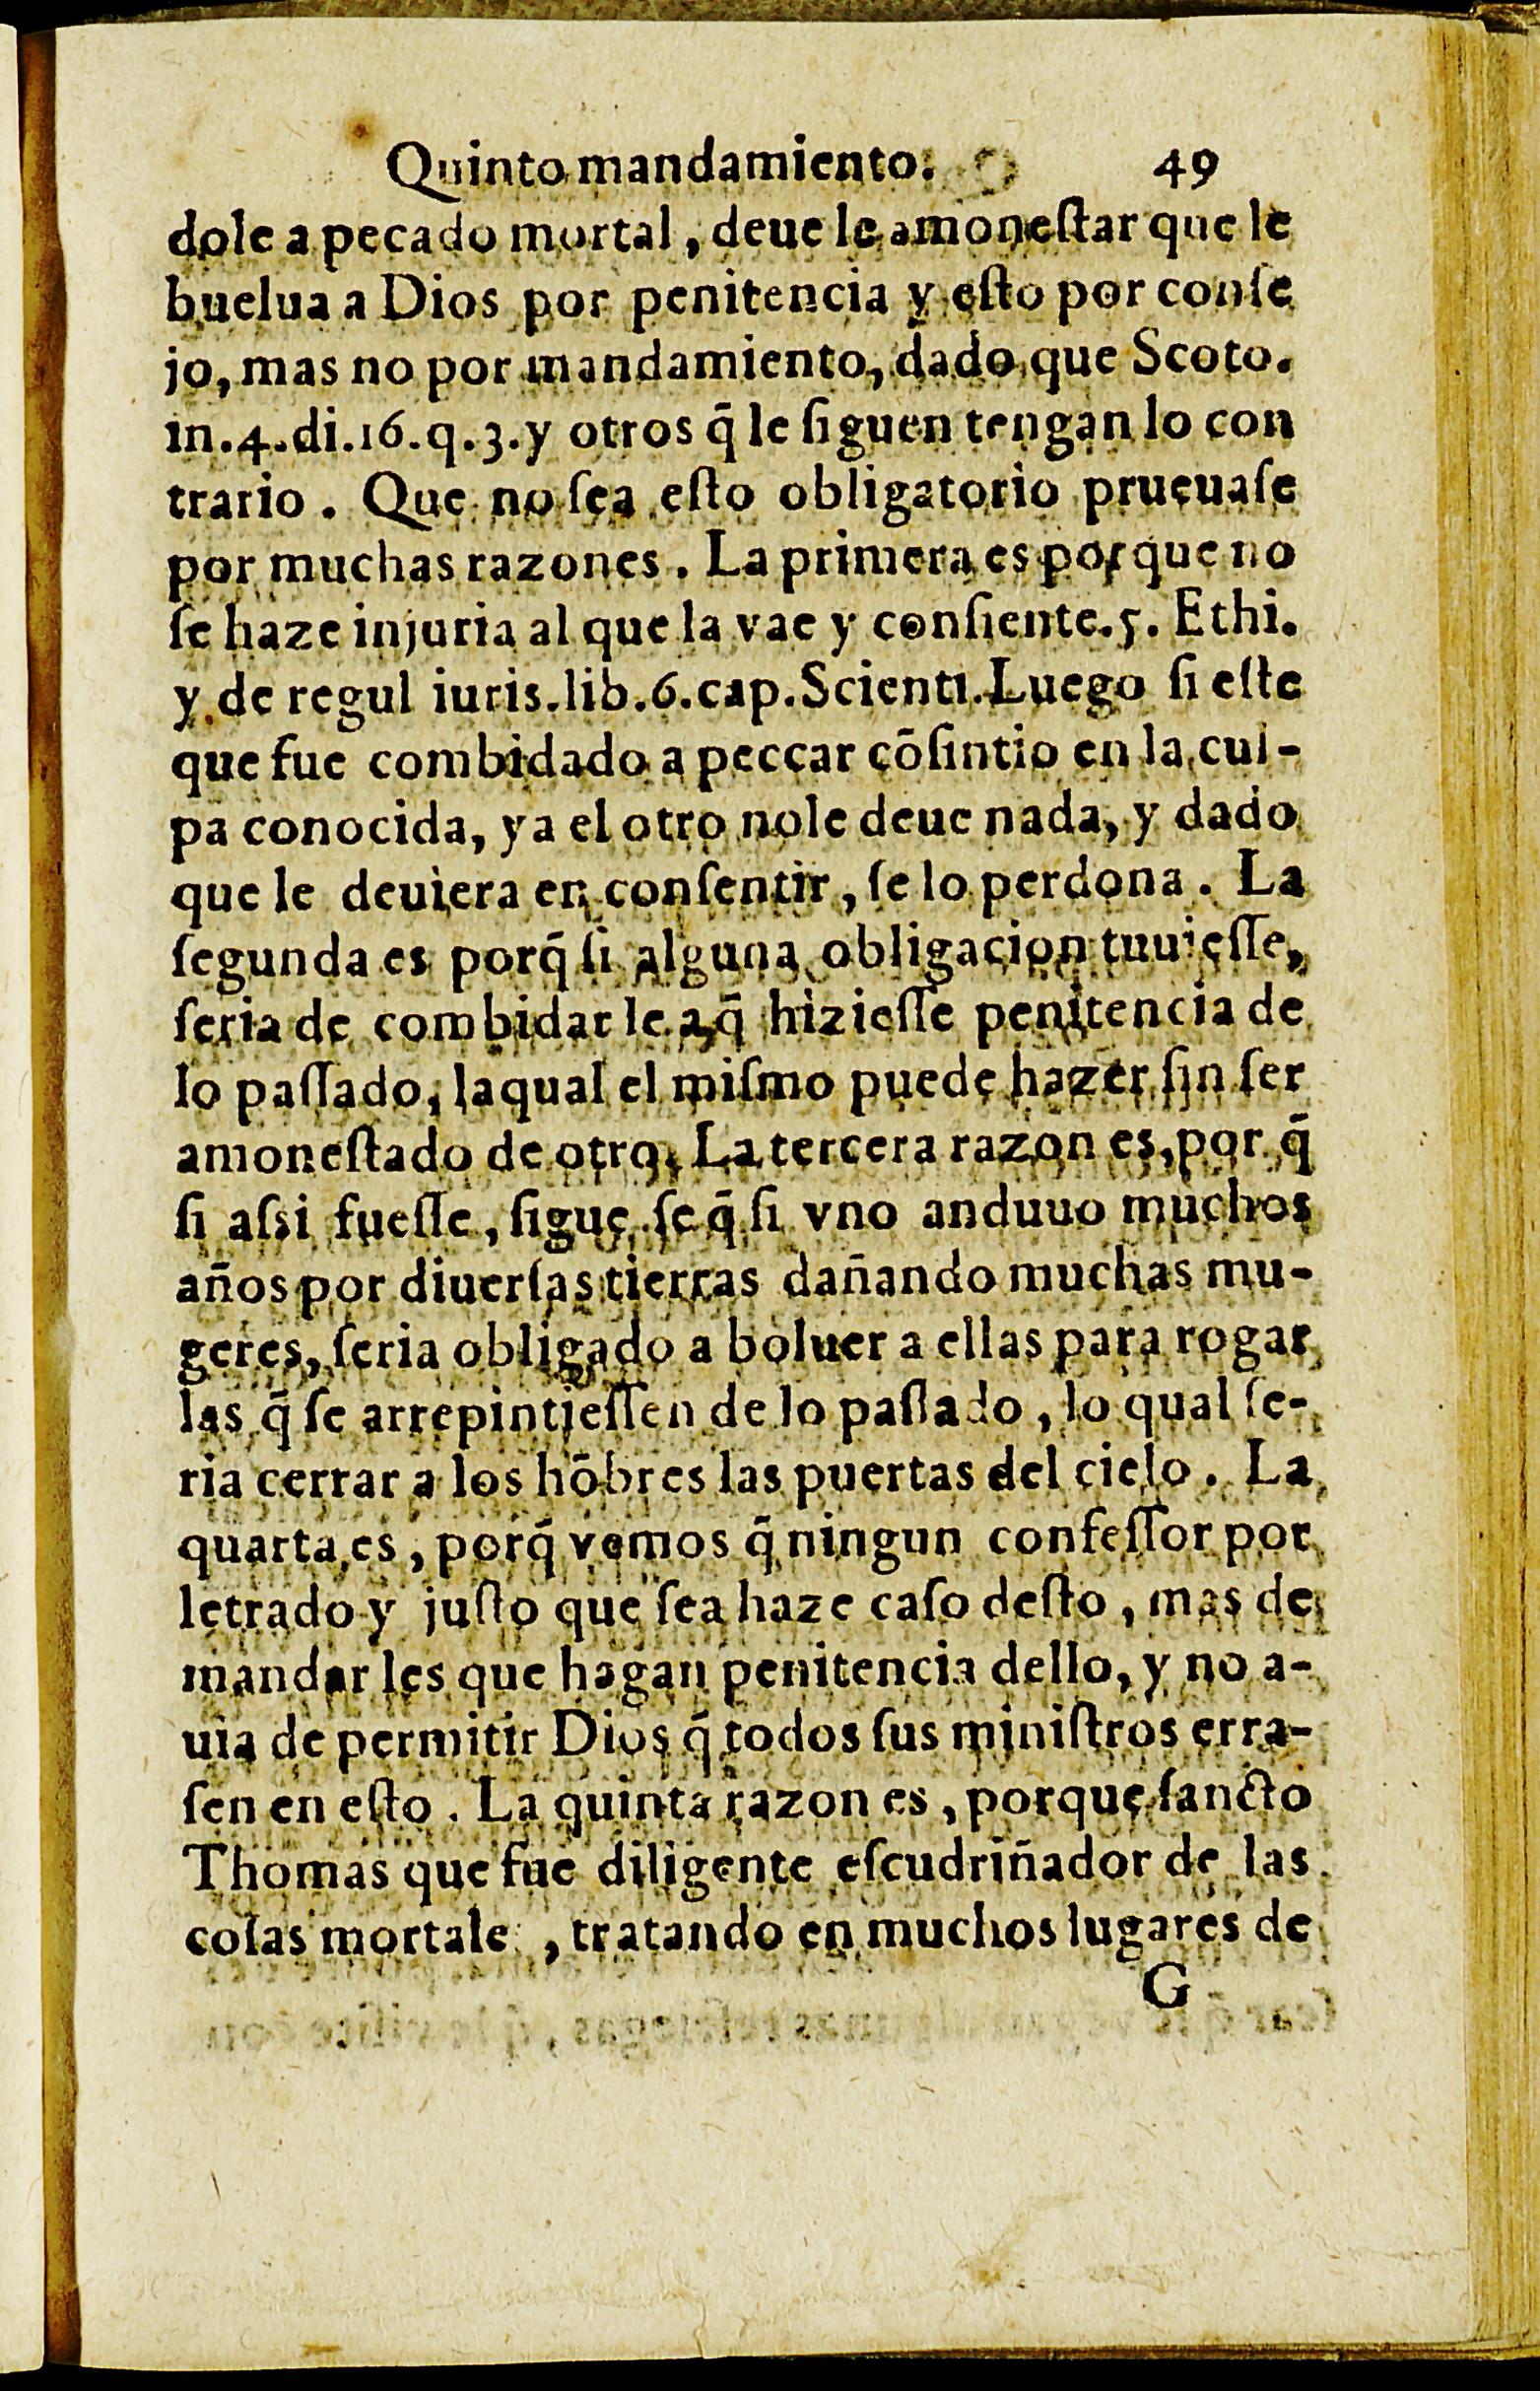 Quinto mandamiento. 49
dole a pecado mortal, deue le amoneſtar que ſe
buelua a Dios por penitencia y eſto por conſe
jo, mas no por mandamiento, dado que Scoto.
in.4.di.16.q.3.y otros q̄ le ſiguen tengan lo con
trario. Que no ſea eſto obligatorio prueuaſe
por muchas razones. La primera es porque no
ſe haze injuria al que la vae y conſiente.5. Ethi.
y de regul iuris.lib.6.cap.Scienti.Luego ſi eſte
que fue combidado a peccar cōſintio en la cul-
pa conocida, ya el otro nole deue nada, y dado
que le deuiera en conſentir, ſe lo perdona. La
ſegunda es porq̄ ſi alguna obligacion tuuieſſe,
ſeria de combidar le a q̄ hizieſſe penitencia de
lo paſſado, laqual el miſmo puede hazer ſin ſer
amoneſtado de otro. La tercera razon es, por q̄
ſi aſsi fueſſe, ſigue ſe q̄ ſi vno anduuo muchos
años por diuerſas tierras dañando muchas mu-
geres, ſeria obligado a boluer a ellas para rogar
las q̄ ſe arrepintieſſen de lo paſſado, lo qual ſe-
ria cerrar a los hōbres las puertas del cielo. La
quarta es, porq̄ vemos q̄ ningun confeſſor por
letrado y juſto que ſea haze caſo deſto, mas de
mandar les que hagan penitencia dello, y no a-
uia de permitir Dios q̄ todos ſus miniſtros erra-
ſen en eſto. La quinta razon es, porque ſancto
Thomas que fue diligente eſcudriñador de las
coſas mortale , tratando en muchos lugares de
G